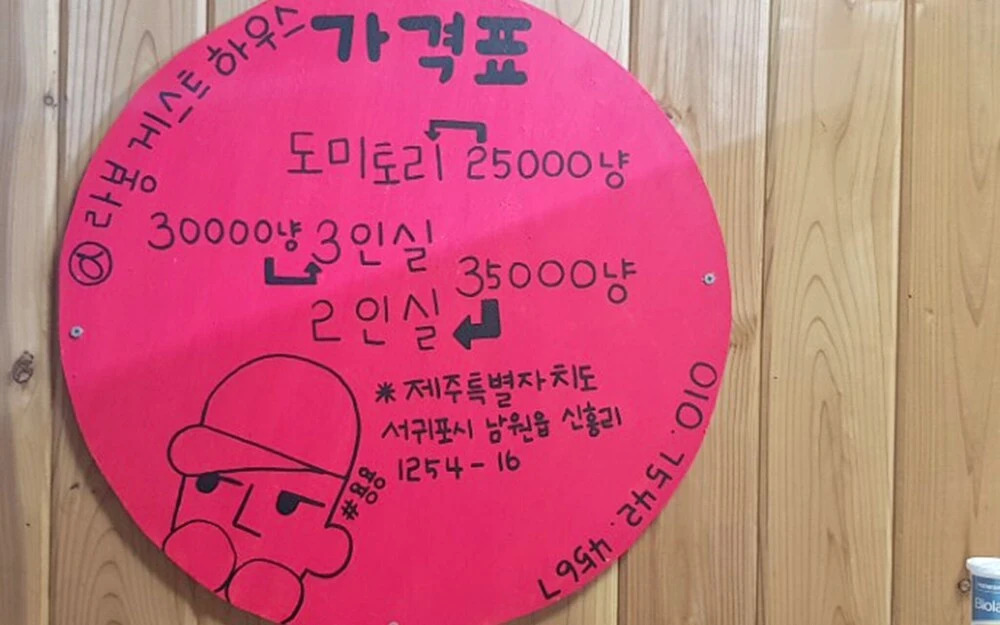 @ 라봉 게스트 하우스
가격표
도미토리 25000냥
30000냥 3인실
35000냥
2인실
* 제주특별자치도
서귀포시 남원읍 신흥리
1254-16
#봉봉
010.7542.4567
Biola